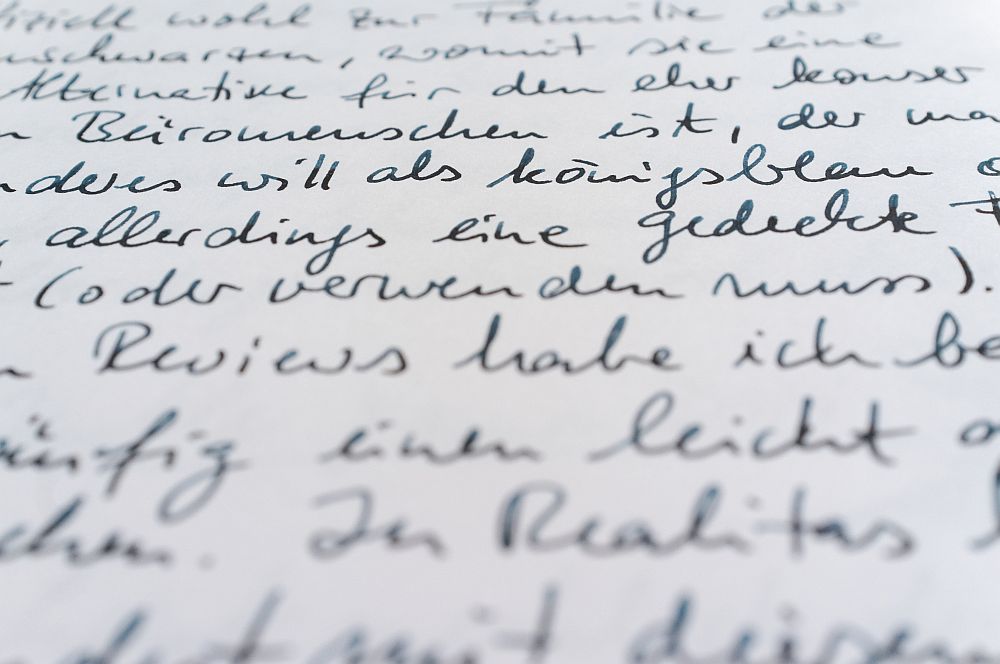 wohl zur Familie der
schwarzen, womit sie eine
Alternative für den eher konser
n Büromenschen ist, der ma
nderes will als königsblau o
, allerdings eine gedeckte F
t (oder verwenden muss).
n Reviews habe ich be
häufig einen leicht
chen. In Realitas
mit diesem